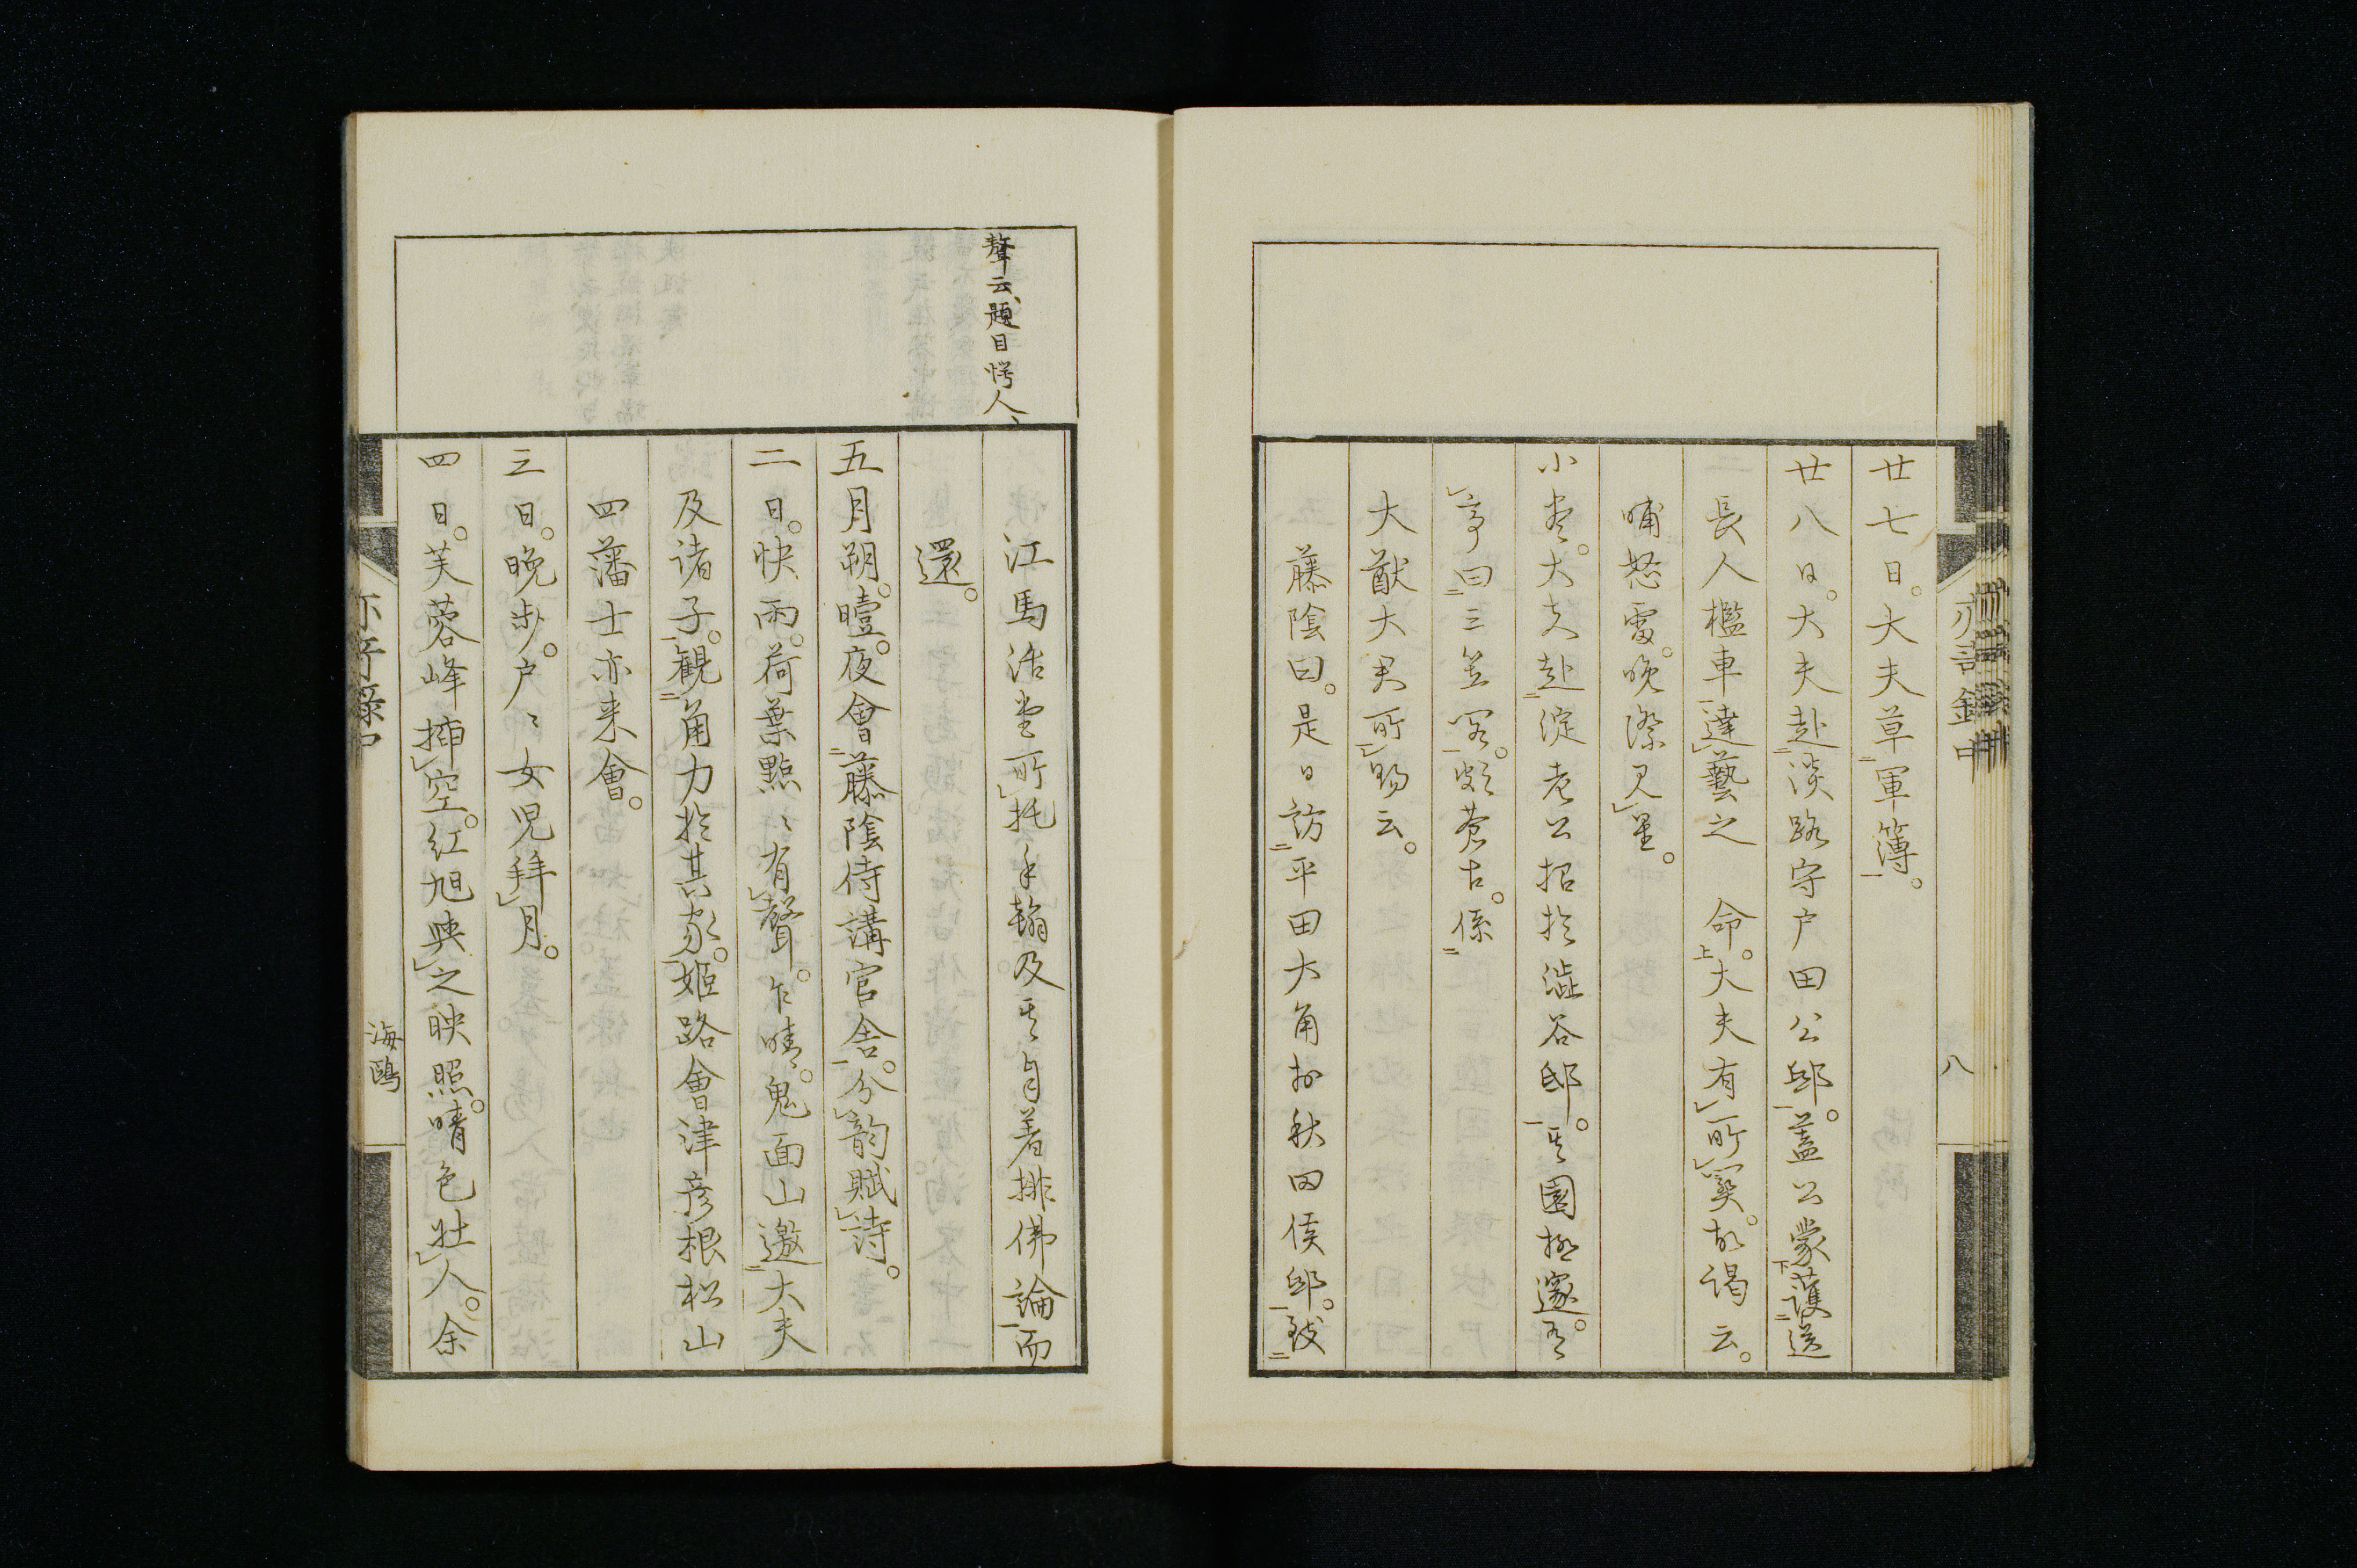 廿七日。大夫草軍簿。
廿八日。大夫赴淡路守戸田公邸。蓋公蒙護送
長人檻車達藝之 命。大夫有所窺。故謁云。
晡怒雷。晩際見星。
小盡。大夫赴淀老公招於澁谷邸。其園極邃。有
亭曰三笠閣。頗蒼古。係
大猷大君所賜云。
藤陰曰。是日訪平田大角於秋田侯邸。致
八
聱云、題目愕人、
江馬活堂所托手翰及其自著排佛論而
還。
五月朔。曀。夜會藤陰侍講官舎。分韵賦詩。
二日。快雨。荷葉點〻有聲。乍晴。鬼面山邀大夫
及诸子。観角力於其家。姫路會津彦根松山
四藩士亦来會。
三日。晩歩。戸〻女児拜月。
四日。芙蓉峰揷空。紅旭與之映照。晴色壯人。余
海鷗